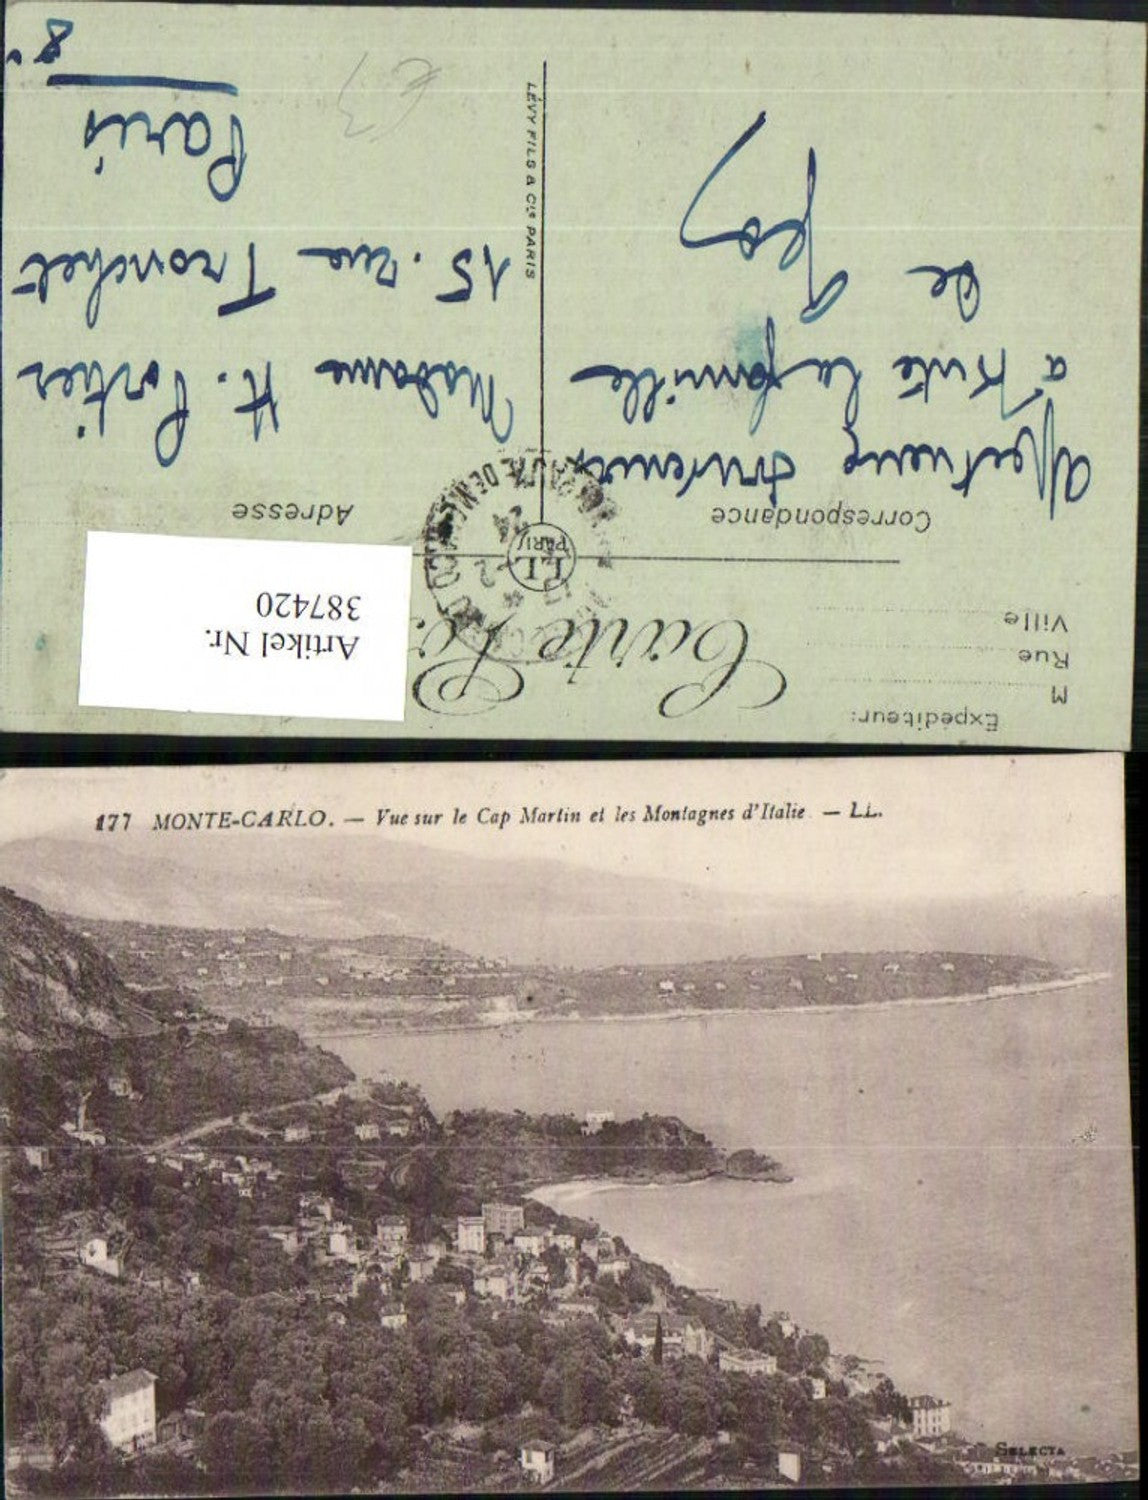 Expéditeur:
M
Rue
Ville
Carte
Correspondance
Adresse
LL
PARIS
Affectueux souvenirs
à toute la famille
de Geo
Madame H. Portier
15. rue Tronchet
Paris
8e
LÉVY FILS & Cie PARIS
Artikel Nr.
387420
177 MONTE-CARLO. — Vue sur le Cap Martin et les Montagnes d'Italie. — LL.
SELECTA